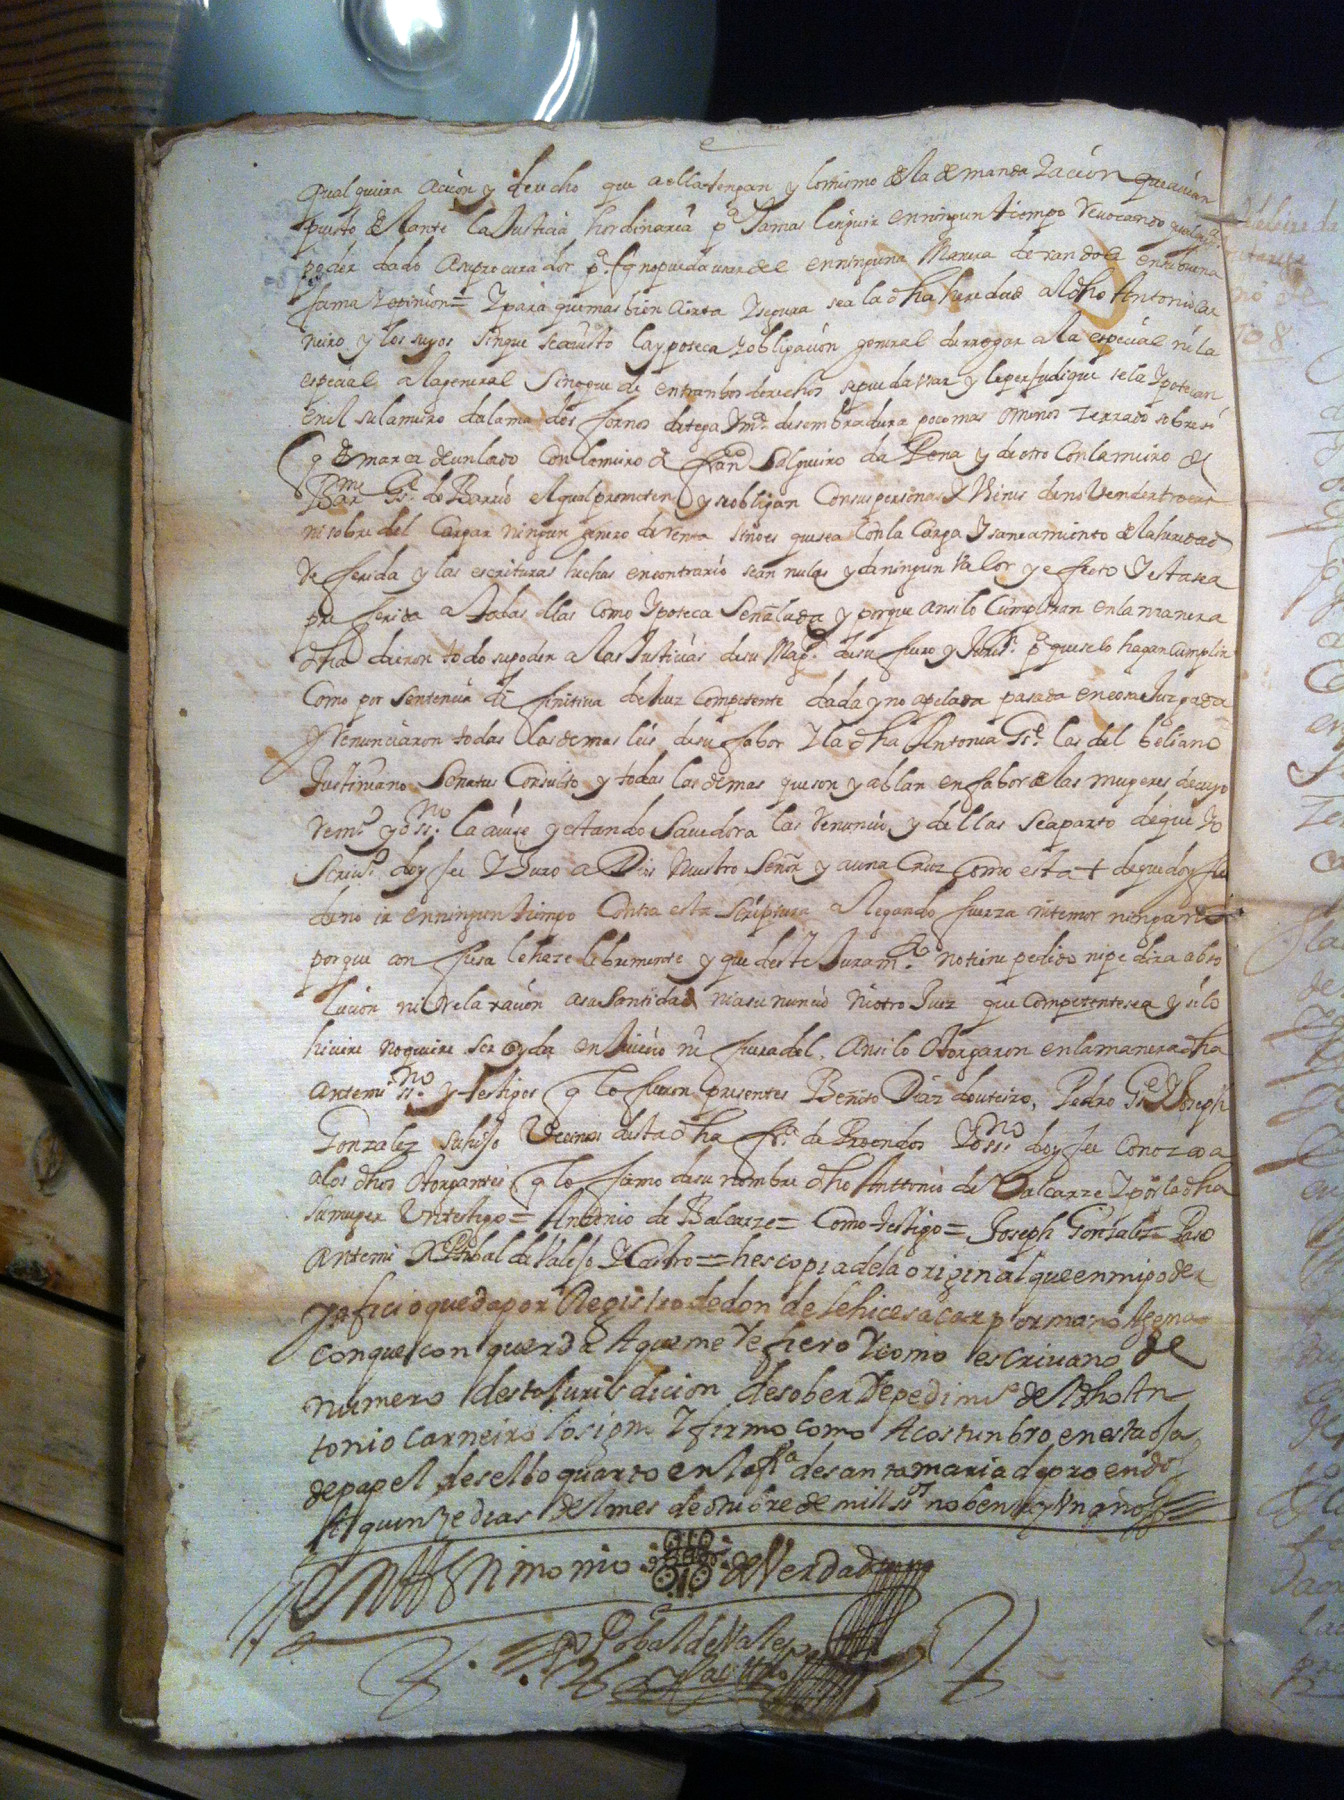 qualquiera acción y derecho que a ella tengan y lo mismo de la demanda y ación que avian
puesto delante la Justicia hordinaria pª Jamas seguir en ningun tiempo revocando qualqrª
poder dado a su procurador pª q no pueda usar del en ninguna Manera dexandola en su buena
fama y opinión = Y para que mas bien cierta y segura sea la dha heredad al dho Antonio Car
neiro y los suyos sin que sea visto la ypoteca y obligación general derrogar a la especial ni la
especial a la general sino que de entranbos derechos se pueda usar y le perjudique se la ypotecan
en el sulameiro da lama dos fornos da tega y mª de sembradura poco mas o menos zerrado sobre si
q demarca de un lado con lameiro de franco Salgueiro da Pena y de otro con lameiro de
Barme Gª do Barrio el qual prometen y se obligan con sus personas y Vienes de no Vender trocar
ni sobre del Cargar ningun genero de renta sino es que sea con la carga y saneamiento de la heredad
Referida y las escrituras hechas en contrario sean nulas y de ningun Valor y efecto y esta sea
preferida a todas ellas como ypoteca Señalada y porque ansi lo Cumpliran en la manera
dha dieron todo su poder a las Justicias de su Magd. de su fuero y Jurisn. pª que se lo hagan Cumplir
Como por Sentencia difinitiva de Juez Competente dada y no apelada pasada en cosa Juzgada
y Renunciaron todas las demas leis de su fabor y la dha Antonia Gª las del beliano
Justiniano Senatus Consulto y todas las demas que son y ablan en fabor de las mugeres de cuyo
Remº yo ssno la avise y estando Savedora las Renunció y dellas se aparto de que yo
Scrivº doy fee y Juro a Dios Nuestro Señor y a una Cruz como esta + de que doy fee
de no ir en ningun tiempo Contra esta Scriptura alegando fuerza ni temor ninguno
porque con fiesa lo haze libremente y que deste Juramto no tiene pedido ni pedira abso
lución ni Relaxación a su Santidad ni a su nuncio ni otro Juez que competente sea y si lo
hiciere no quiere ser oyda en Juicio ni fuera del. Ansi lo otorgaron en la manera dha
ante mi ssno y testigos q lo fueron presentes Benito Diaz douteiro, Pedro Gª y Joseph
Gonzalez su hijo Vecinos desta dha fª de Proendos Yo ssno doy fee conozco a
a los dhos otorgantes q lo firmo de su nombre dho Anttonio de Valcarze y por la dha
su muger Un testigo = Antonio de Balcarze = Como testigo = Joseph Gonzalez = Paso
ante mi Xptobal de Valejo y Castro = hes copia de la original que en mi poder
y oficio queda por Registro de donde le hice sacar por mano Agena
con que concuerda A que me Refiero y como escrivano de
numero desta Jurisdicion de sober De pedimto del dho An
tonio carneiro lo signo Y firmo como Acostunbro en esta oja
de papel de sello quarto en la fª de santa maria de proendos
A quinze dias del mes de otubre de mill ssos nobenta y Un años
En testimonio de Verdad
Xptobal de Valejo
y Castro